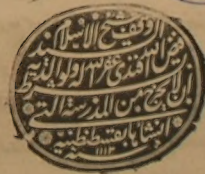 وقف شيخ الاسلام السيد
فيض الله افندي غفر الله له ولوالديه
بشرط ان لا يخرج من المدرسة التي
انشأها بقسطنطينية
سنة ١١١٣